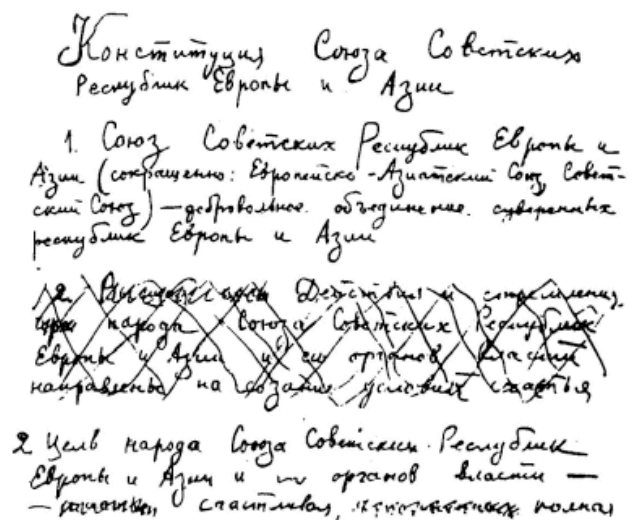 Конституция Союза Советских
Республик Европы и Азии
1. Союз Советских Республик Европы и
Азии (сокращенно: Европейско-Азиатский Союз, Совет-
ский Союз) — добровольное объединение суверенных
республик Европы и Азии
2. Действия и стремления
народа Союза Советских Республик
Европы и Азии и его органов власти
направлены на создание условий счастья
2 Цель народа Союза Советских Республик
Европы и Азии и органов власти —
— счастливая, полная